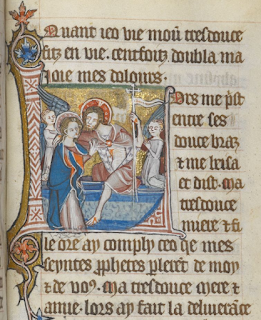 Quant ieo vie moū tresdouce
fitz en vie. centfoitz doubla ma
ioie mes dolours.
Ors me pʼst
entre ses
douce braz
⁊ me baisa
et dist. Ma
tresdouce
miere ⁊ fi
le ore ay comply ceo qe mes
seyntes ꝓphetes ꝑlerēt de moy
⁊ de vo⁹. Ma tresdouce miere ⁊
amie. lors ay fait la deliuerāce